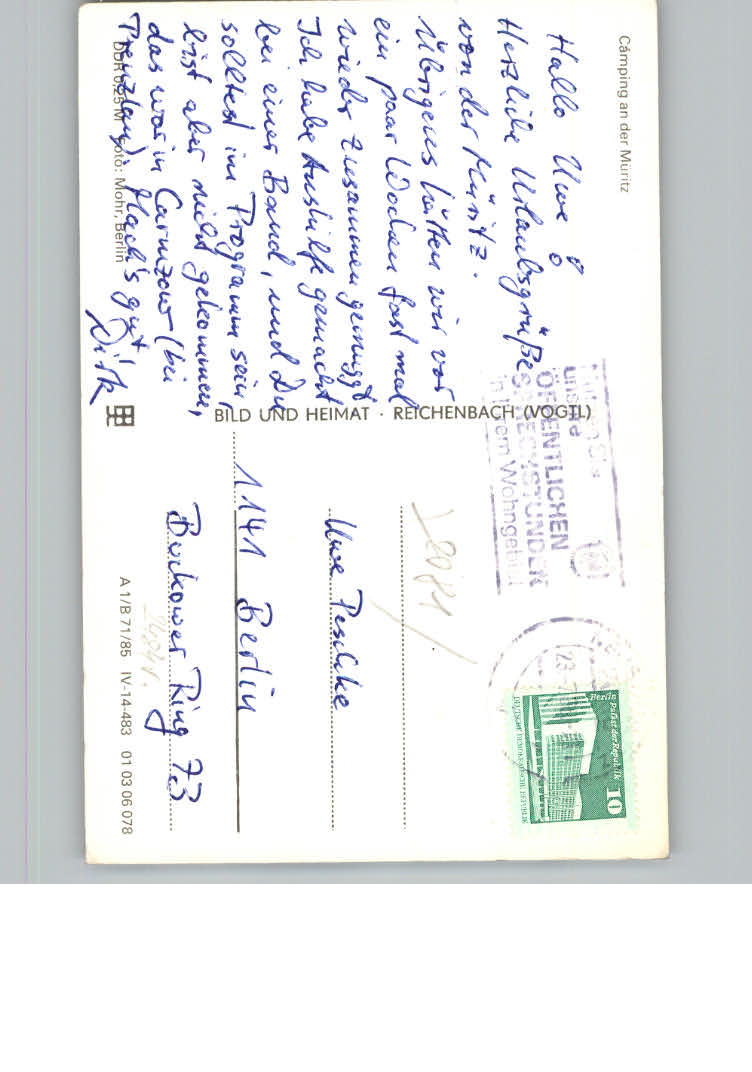 Camping an der Müritz
Hallo Uwe!
Herzliche Urlaubsgrüße
von der Müritz.
Übrigens hätten wir vor
ein paar Wochen fast mal
wieder zusammen gemuggt
Ich habe Aushilfe gemacht
bei einer Band, und Du
solltest im Programm sein,
bist aber nicht gekommen,
das war in Carmzow (bei
Prenzlau). Mach's gut!
Dirk
DDR 0,25 M Foto: Mohr, Berlin
BILD UND HEIMAT · REICHENBACH (VOGTL)
unsere
ÖFFENTLICHEN
SPRECHSTUNDEN
in Ihrem Wohngebiet
Berlin Palast der Republik
10
DEUTSCHE DEMOKRATISCHE REPUBLIK
Uwe Peschke
1141 Berlin
Buckower Ring 73
A 1/B 71/85 IV-14-483 01 03 06 078